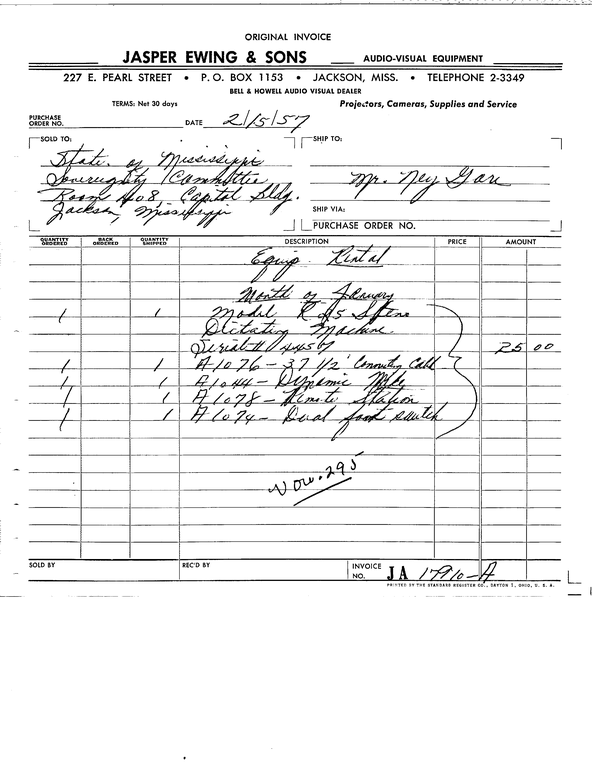 ORIGINAL INVOICE
JASPER EWING & SONS AUDIO-VISUAL EQUIPMENT
227 E. PEARL STREET • P. O. BOX 1153 • JACKSON, MISS. • TELEPHONE 2-3349
BELL & HOWELL AUDIO VISUAL DEALER
TERMS: Net 30 days Projectors, Cameras, Supplies and Service
PURCHASE ORDER NO. DATE 2/15/57
SOLD TO: SHIP TO:
State of Mississippi
Sovereignty Committee
Room 408, Capitol Bldg. Mr. Ney Gore
Jackson, Mississippi SHIP VIA:
PURCHASE ORDER NO.
QUANTITY ORDERED BACK ORDERED QUANTITY SHIPPED DESCRIPTION PRICE AMOUNT
Equip. Rental
Month of January
1 1 Model
Dictating Machine
Serial # 25 00
1 1 A1076 - 37 1/2' Connecting Cable
1 1 A1044 - Dynamic Mike
1 1 A1078 - Remote Station
1 1 A1074 - Dual foot switch
Vou. 295
SOLD BY REC'D BY INVOICE NO. JA 17910-A
PRINTED BY THE STANDARD REGISTER CO., DAYTON 1, OHIO, U. S. A.